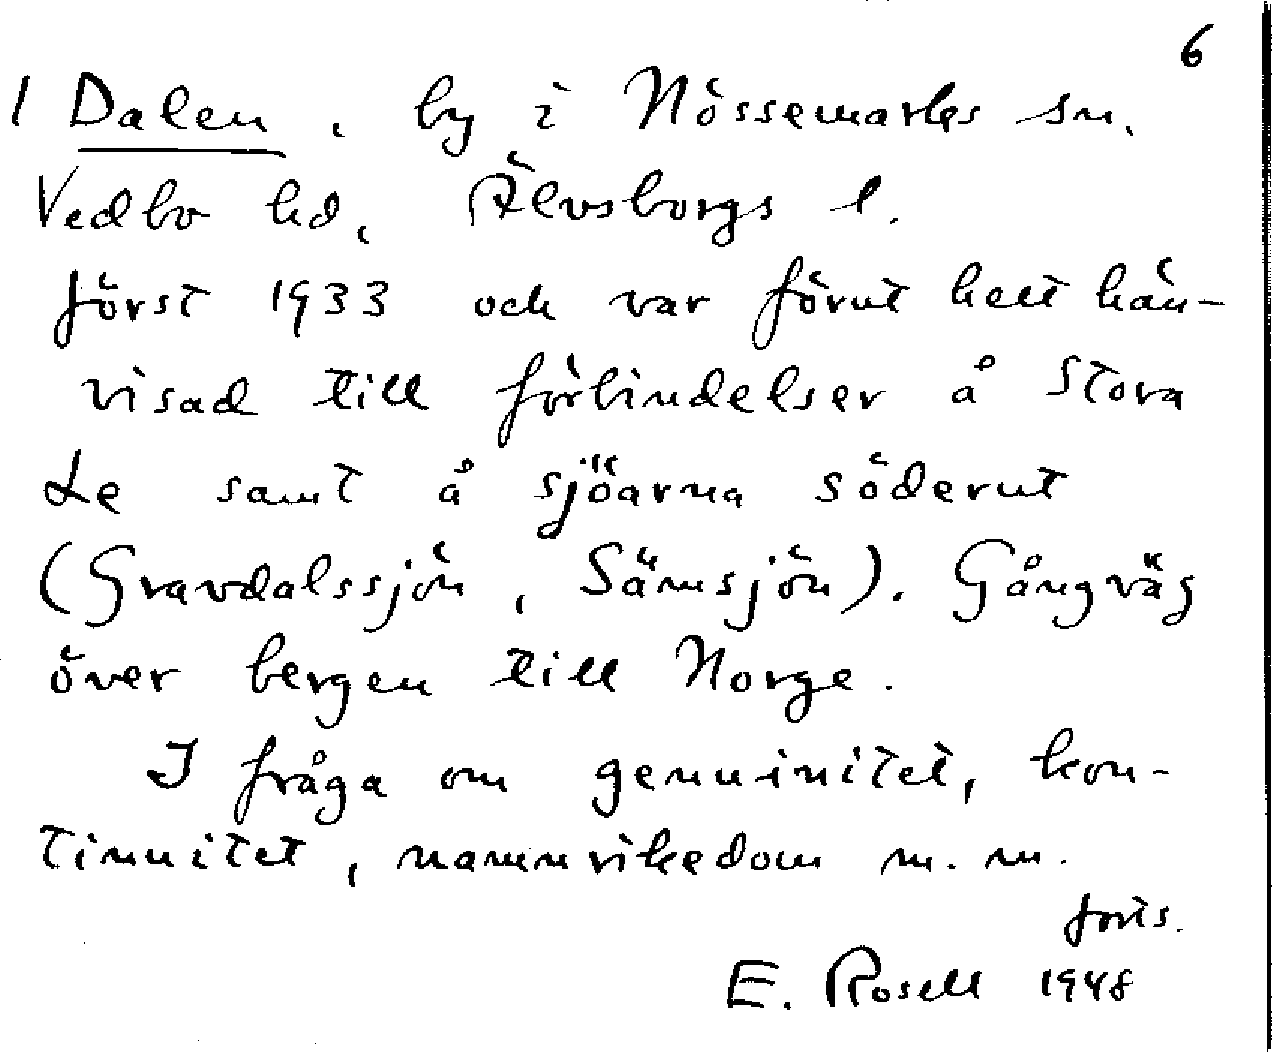 6
1 Dalen, by i Nössemarks sn,
Vedbo hd, Älvsborgs l.
först 1933 och var förut helt hän-
visad till förbindelser å Stora
Le samt å sjöarna söderut
(Gravdalssjön, Sämsjön). Gångväg
över bergen till Norge.
I fråga om genuinitet, kon-
tinuitet, namnrikedom m. m.
forts.
E. Rosell 1948